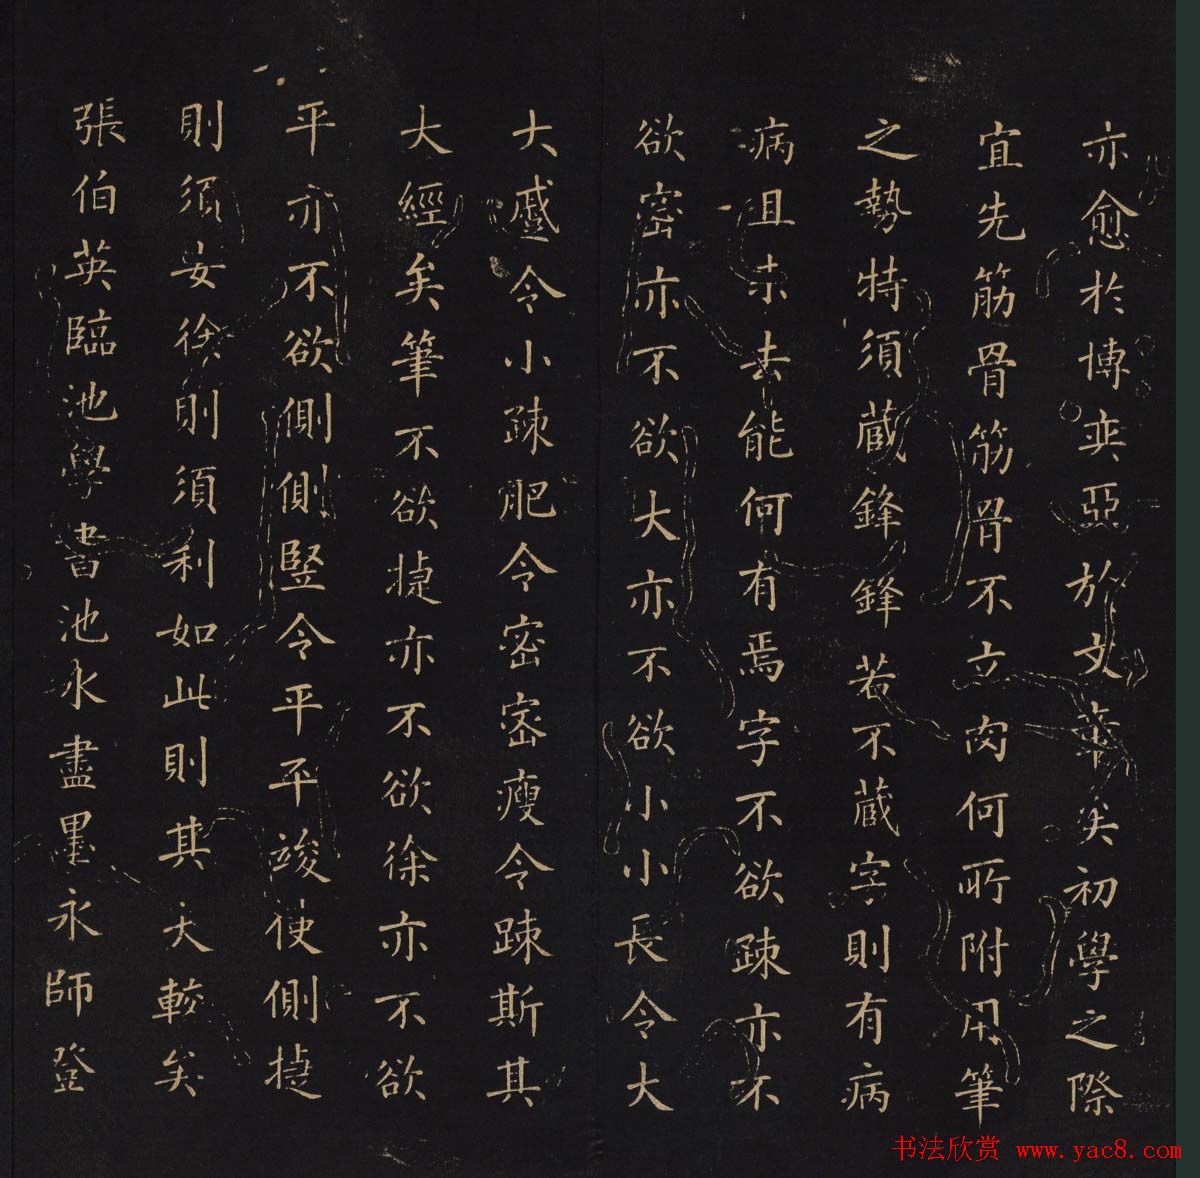 亦愈於博奕亞於文章矣初學之際
宜先筋骨筋骨不立肉何所附用筆
之勢特須蔵鋒鋒若不蔵字則有病
病且未去能何有焉字不欲踈亦不
欲密亦不欲大亦不欲小小長令大
大蹙令小踈肥令密密瘦令踈斯其
大經矣筆不欲捷亦不欲徐亦不欲
平亦不欲側側竪令平平竣使側捷
則須安徐則須利如此則其大較矣
張伯英臨池學書池水盡墨永師登
书法欣赏 www.yac8.com